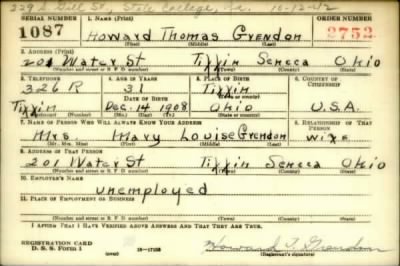 229 S. Gill St., State College, Pa. 10-12-42
SERIAL NUMBER 1. NAME (Print) ORDER NUMBER
1087 Howard Thomas Grendon 2752
(First) (Middle) (Last)
2. ADDRESS (Print)
201 Water St Tiffin Seneca Ohio
(Number and street or R. F. D. number) (Town) (County) (State)
3. TELEPHONE 4. AGE IN YEARS 5. PLACE OF BIRTH 6. COUNTRY OF CITIZENSHIP
326 R 31 Tiffin
DATE OF BIRTH
Tiffin Dec. 14 1908 Ohio U.S.A.
(Exchange) (Number) (Mo.) (Day) (Yr.) (State or country)
7. NAME OF PERSON WHO WILL ALWAYS KNOW YOUR ADDRESS 8. RELATIONSHIP OF THAT PERSON
Mrs. Mary Louise Grendon wife
(Mr., Mrs., Miss) (First) (Middle) (Last)
9. ADDRESS OF THAT PERSON
201 Water St Tiffin Seneca Ohio
(Number and street or R. F. D. number) (Town) (County) (State)
10. EMPLOYER'S NAME
unemployed
11. PLACE OF EMPLOYMENT OR BUSINESS
(Number and street or R. F. D. number) (Town) (County) (State)
I AFFIRM THAT I HAVE VERIFIED ABOVE ANSWERS AND THAT THEY ARE TRUE.
REGISTRATION CARD
D. S. S. Form 1 16-17105 Howard T. Grendon
(Registrant's signature)